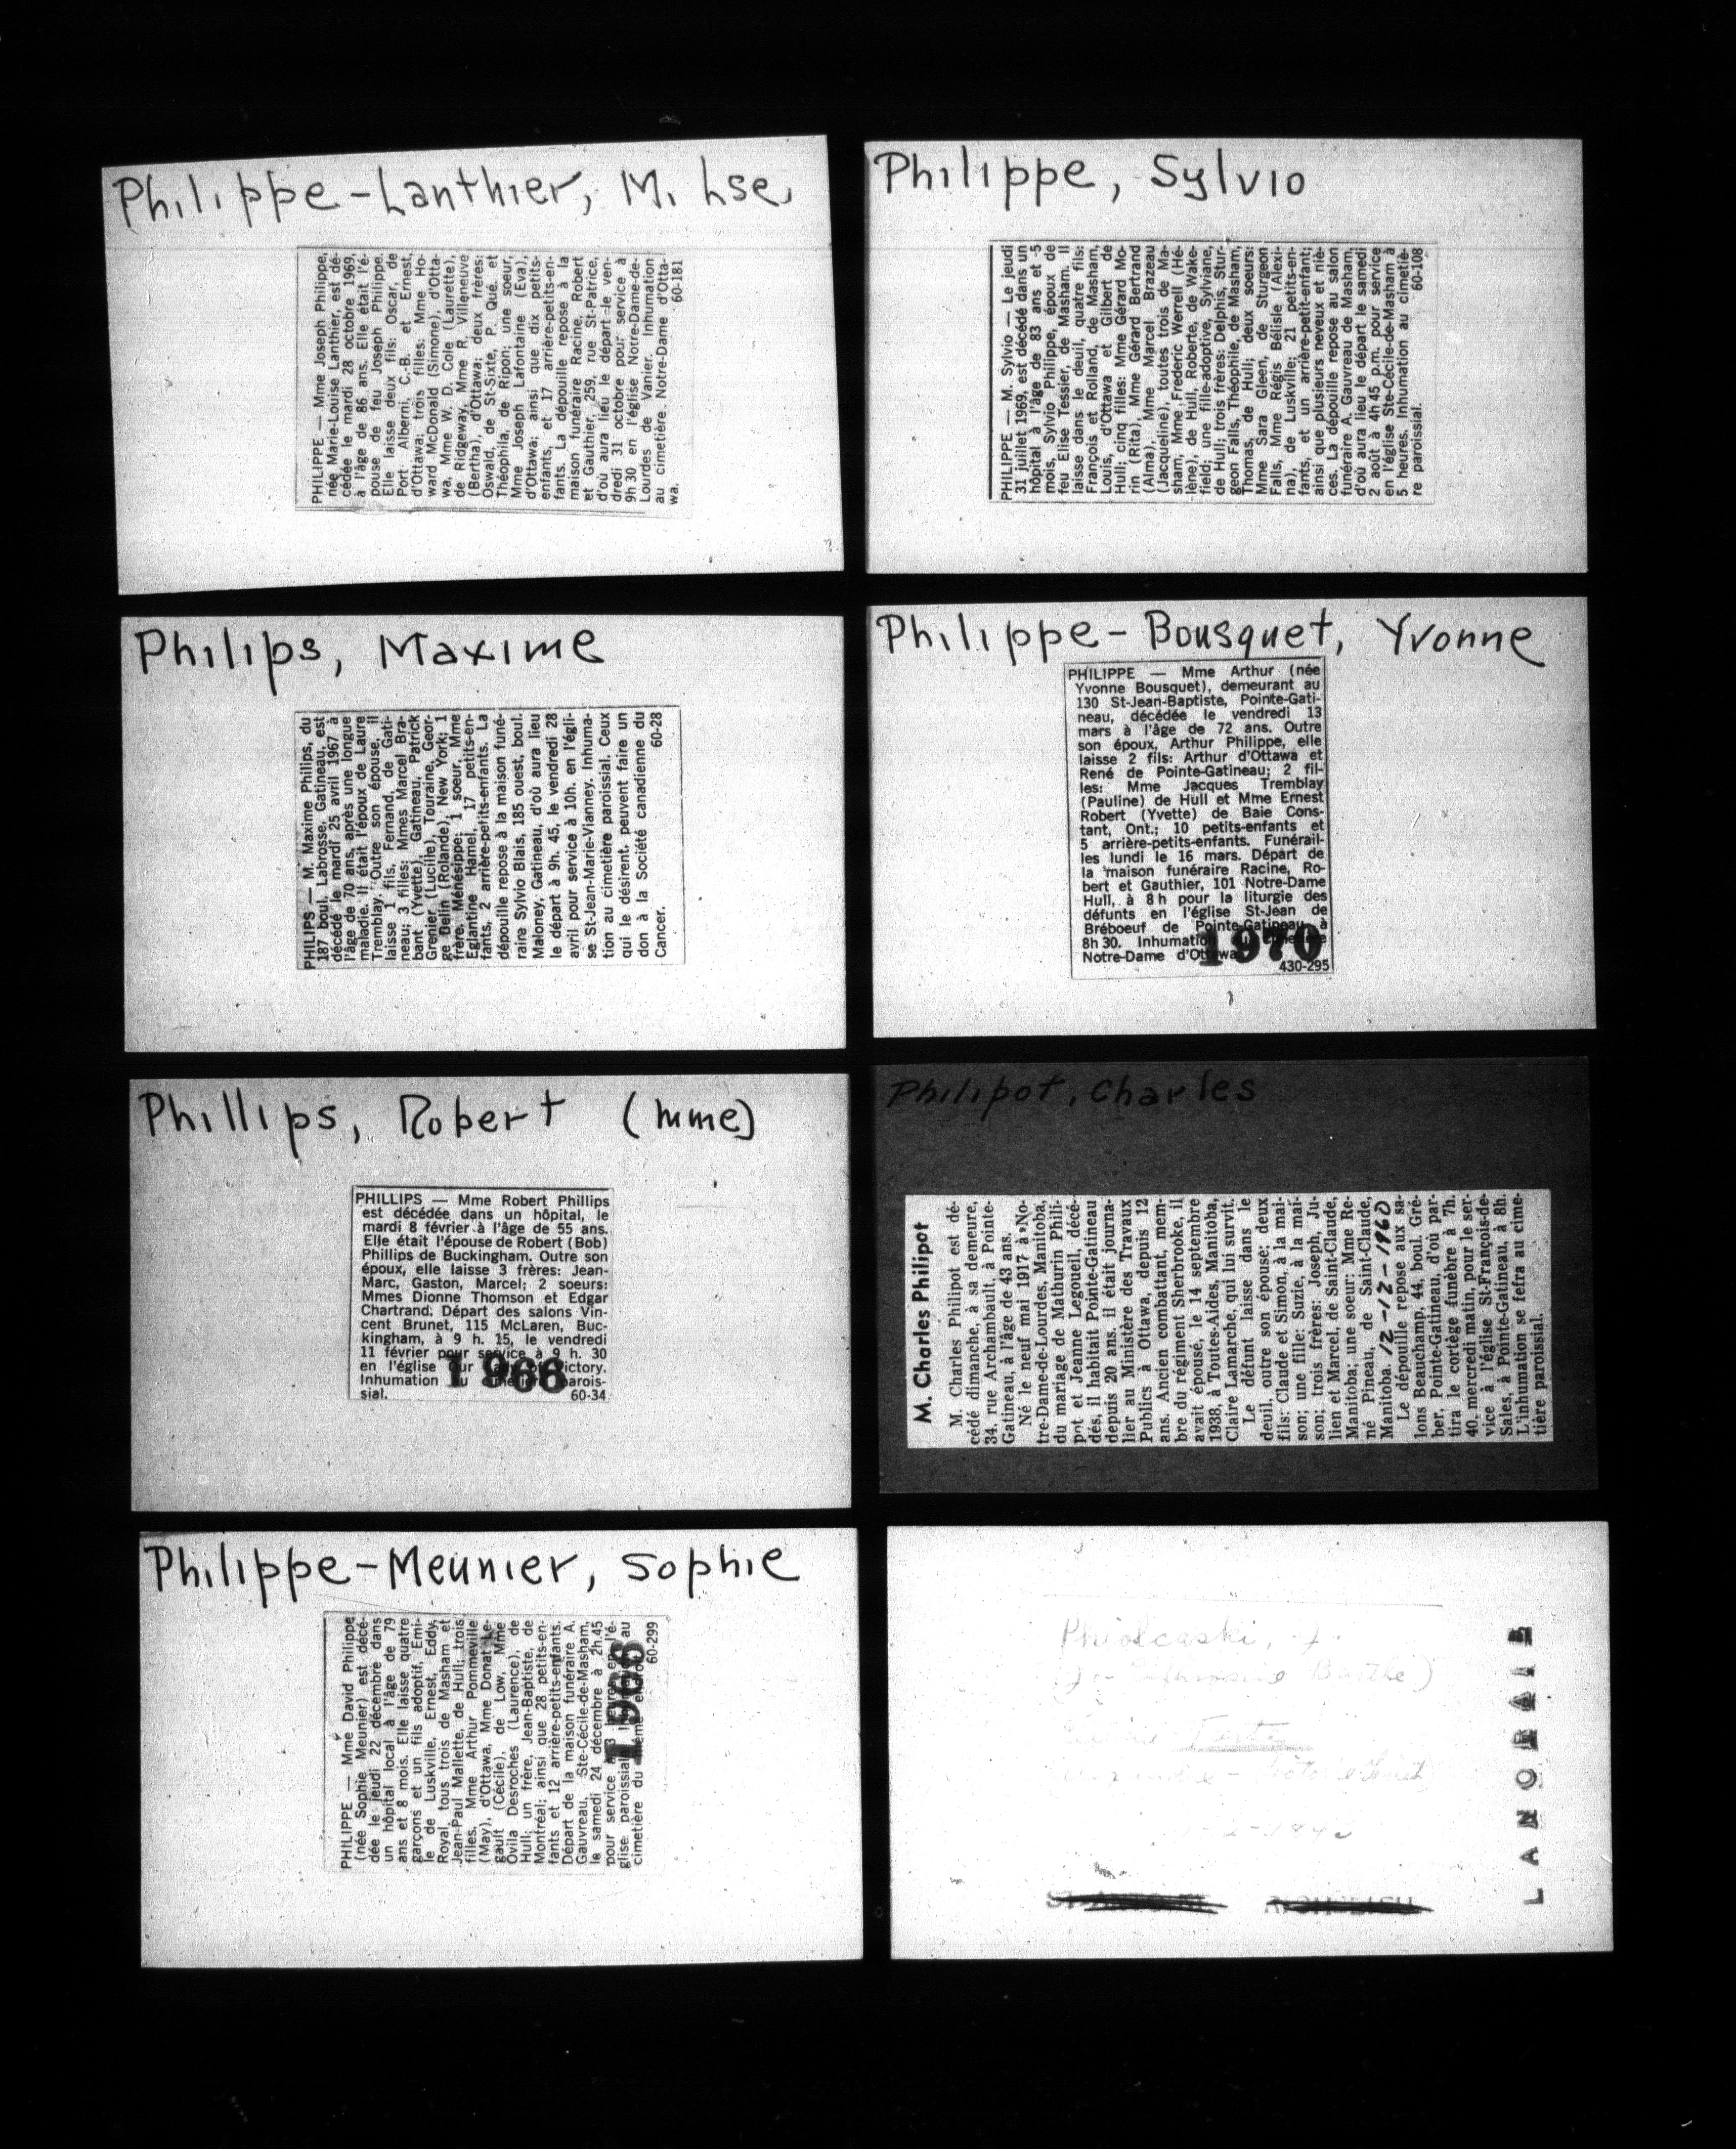 Philippe-Lanthier, M. Lse.
PHILIPPE — Mme Joseph Philippe,
née Marie-Louise Lanthier, est dé-
cédée le mardi 28 octobre 1969,
à l'âge de 86 ans. Elle était l'é-
pouse de feu Joseph Philippe.
Elle laisse deux fils: Oscar, de
Port Alberni, C.-B. et Ernest,
d'Ottawa; trois filles: Mme Ho-
ward McDonald (Simone), d'Otta-
wa, Mme W. D. Cole (Laurette),
de Ridgeway, Mme R. Villeneuve
(Bertha), d'Ottawa; deux frères:
Oswald, de St-Sixte, P. Qué. et
Théophila, de Ripon; une soeur,
Mme Joseph Lafontaine (Eva),
d'Ottawa; ainsi que dix petits-
enfants, et 17 arrière-petits-en-
fants. La dépouille repose à la
maison funéraire Racine, Robert
et Gauthier, 259, rue St-Patrice,
d'où aura lieu le départ le ven-
dredi 31 octobre pour service à
9h 30 en l'église Notre-Dame-de-
Lourdes de Vanier. Inhumation
au cimetière Notre-Dame d'Otta-
wa. 60-181
Philippe, Sylvio
PHILIPPE — M. Sylvio — Le jeudi
31 juillet 1969, est décédé dans un
hôpital à l'âge de 83 ans et 5
mois, Sylvio Philippe, époux de
feu Elise Tessier, de Masham. Il
laisse dans le deuil, quatre fils:
François et Rolland, de Masham,
Louis, d'Ottawa et Gilbert de
Hull; cinq filles: Mme Gérard Mo-
rin (Rita), Mme Gérard Bertrand
(Alma), Mme Marcel Brazeau
(Jacqueline), toutes trois de Ma-
sham, Mme Frederic Werrell (Hé-
lène), de Hull, Roberte, de Wake-
field; une fille-adoptive, Sylviane,
de Hull; trois frères: Delphis, Stur-
geon Falls, Théophile, de Masham,
Thomas, de Hull; deux soeurs:
Mme Sara Gleen, de Sturgeon
Falls, Mme Régis Bélisle (Alexi-
na), de Luskville; 21 petits-en-
fants, et un arrière-petit-enfant;
ainsi que plusieurs neveux et niè-
ces. La dépouille repose au salon
funéraire A. Gauvreau de Masham,
d'où aura lieu le départ le samedi
2 août à 4h 45 p.m. pour service
en l'église Ste-Cécile-de-Masham à
5 heures. Inhumation au cimetiè-
re paroissial. 60-108
Philips, Maxime
PHILIPS — M. Maxime Philips, du
187 boul. Labrosse, Gatineau, est
décédé le mardi 25 avril 1967 à
l'âge de 70 ans, après une longue
maladie. Il était l'époux de Laure
Tremblay. Outre son épouse, il
laisse 1 fils, Fernand, de Gati-
neau; 3 filles: Mmes Marcel Bra-
bant (Yvette), Gatineau, Patrick
Grenier (Lucille), Touraine, Geor-
ge Belin (Rolande), New York; 1
frère, Ménésippe; 1 soeur, Mme
Eglantine Hamel, 17 petits-en-
fants, 2 arrière-petits-enfants. La
dépouille repose à la maison funé-
raire Sylvio Blais, 185 ouest, boul.
Maloney, Gatineau, d'où aura lieu
le départ à 9h. 45, le vendredi 28
avril pour service à 10h. en l'égli-
se St-Jean-Marie-Vianney. Inhuma-
tion au cimetière paroissial. Ceux
qui le désirent, peuvent faire un
don à la Société canadienne du
Cancer. 60-28
Philippe-Bousquet, Yvonne
PHILIPPE — Mme Arthur (née
Yvonne Bousquet), demeurant au
130 St-Jean-Baptiste, Pointe-Gati-
neau, décédée le vendredi 13
mars à l'âge de 72 ans. Outre
son époux, Arthur Philippe, elle
laisse 2 fils: Arthur d'Ottawa et
René de Pointe-Gatineau; 2 fil-
les: Mme Jacques Tremblay
(Pauline) de Hull et Mme Ernest
Robert (Yvette) de Baie Cons-
tant, Ont.; 10 petits-enfants et
5 arrière-petits-enfants. Funérail-
les lundi le 16 mars. Départ de
la maison funéraire Racine, Ro-
bert et Gauthier, 101 Notre-Dame
Hull, à 8 h pour la liturgie des
défunts en l'église St-Jean de
Bréboeuf de Pointe-Gatineau à
8h 30. Inhumation au cimetière
Notre-Dame d'Ottawa
1970
430-295
Phillips, Robert (mme)
PHILLIPS — Mme Robert Phillips
est décédée dans un hôpital, le
mardi 8 février à l'âge de 55 ans.
Elle était l'épouse de Robert (Bob)
Phillips de Buckingham. Outre son
époux, elle laisse 3 frères: Jean-
Marc, Gaston, Marcel; 2 soeurs:
Mmes Dionne Thomson et Edgar
Chartrand. Départ des salons Vin-
cent Brunet, 115 McLaren, Buc-
kingham, à 9 h. 15, le vendredi
11 février pour service à 9 h. 30
en l'église Our Lady of Victory.
Inhumation au cimetière parois-
sial. 60-34
1966
Philipot, Charles
M. Charles Philipot
M. Charles Philipot est dé-
cédé dimanche, à sa demeure,
34, rue Archambault, à Pointe-
Gatineau, à l'âge de 43 ans.
Né le neuf mai 1917 à No-
tre-Dame-de-Lourdes, Manitoba,
du mariage de Mathurin Phili-
pot et Jeanne Legoueil, décé-
dés, il habitait Pointe-Gatineau
depuis 20 ans. il était journa-
lier au Ministère des Travaux
Publics à Ottawa, depuis 12
ans. Ancien combattant, mem-
bre du régiment Sherbrooke, il
avait épousé, le 14 septembre
1938, à Toutes-Aides, Manitoba,
Claire Lamarche, qui lui survit.
Le défunt laisse dans le
deuil, outre son épouse: deux
fils: Claude et Simon, à la mai-
son; une fille: Suzie, à la mai-
son; trois frères: Joseph, Ju-
lien et Marcel, de Saint-Claude,
Manitoba; une soeur: Mme Re-
né Pineau, de Saint-Claude,
Manitoba. 12-12-1960
Le dépouille repose aux sa-
lons Beauchamp, 44, boul. Gré-
ber, Pointe-Gatineau, d'où par-
tira le cortège funèbre à 7h.
40, mercredi matin, pour le ser-
vice à l'église St-François-de-
Sales, à Pointe-Gatineau, à 8h.
L'inhumation se fefra au cime-
tière paroissial.
Philippe-Meunier, Sophie
PHILIPPE — Mme David Philippe
(née Sophie Meunier) est décé-
dée le jeudi 22 décembre dans
un hôpital local à l'âge de 79
ans et 8 mois. Elle laisse quatre
garçons et un fils adoptif, Emi-
le de Luskville, Ernest, Eddy,
Royal, tous trois de Masham et
Jean-Paul Mallette, de Hull; trois
filles, Mme Arthur Pommeville
(May), d'Ottawa, Mme Donat Le-
gault (Cécile), de Low, Mme
Ovila Desroches (Laurence), de
Hull; un frère, Jean-Baptiste, de
Montréal; ainsi que 28 petits-en-
fants et 12 arrière-petits-enfants.
Départ de la maison funéraire A.
Gauvreau, Ste-Cécile-de-Masham,
le samedi 24 décembre à 2h.45
pour service à 3 heures en l'é-
glise paroissiale. Inhumation au
cimetière du même endroit.
60-299
1966
LANORAIE